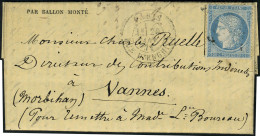 PAR BALLON MONTÉ.
PARIS
Monsieur Charles Pruelle
Directeur de Contributions Indirectes
à Vannes
(Morbihan)
(Pour remettre à Made Lse Boureau)